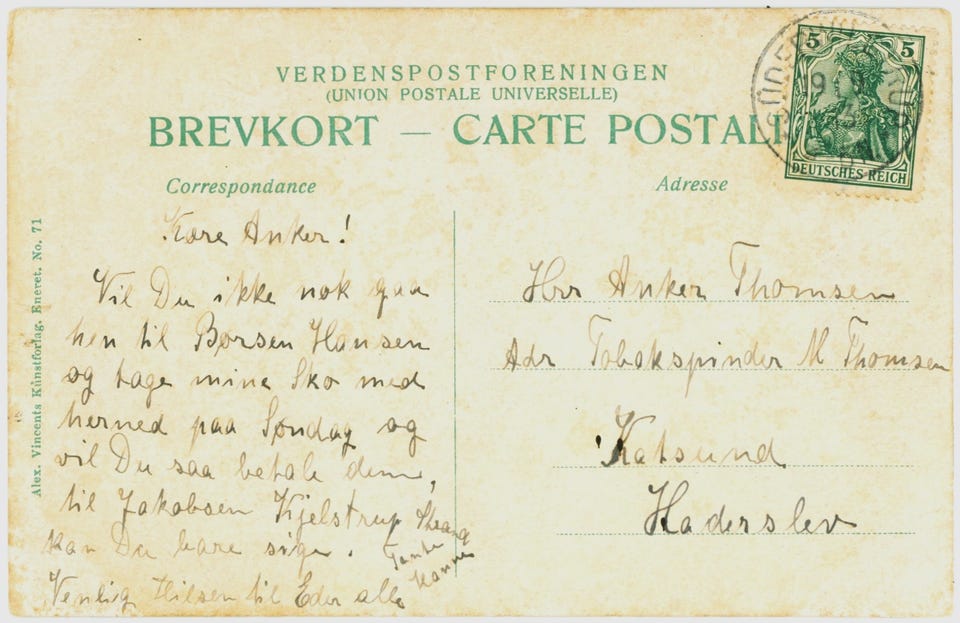 VERDENSPOSTFORENINGEN
(UNION POSTALE UNIVERSELLE)
BREVKORT — CARTE POSTALE
5 5
DEUTSCHES REICH
Correspondance
Adresse
Alex. Vincents Kunstforlag, Eneret. No. 71
Kære Anker!
Vil Du ikke nok gaa
hen til Børsen Hansen
og tage mine Sko med
herned paa Søndag og
vil Du saa betale dem,
til Jakobsen Kjelstrup
kan Du bare sige.
Venlig Hilsen til Eder alle
Tante
Hanne
Herr Anker Thomsen
Adr Tobakspinder M Thomsen
Katsund
Haderslev